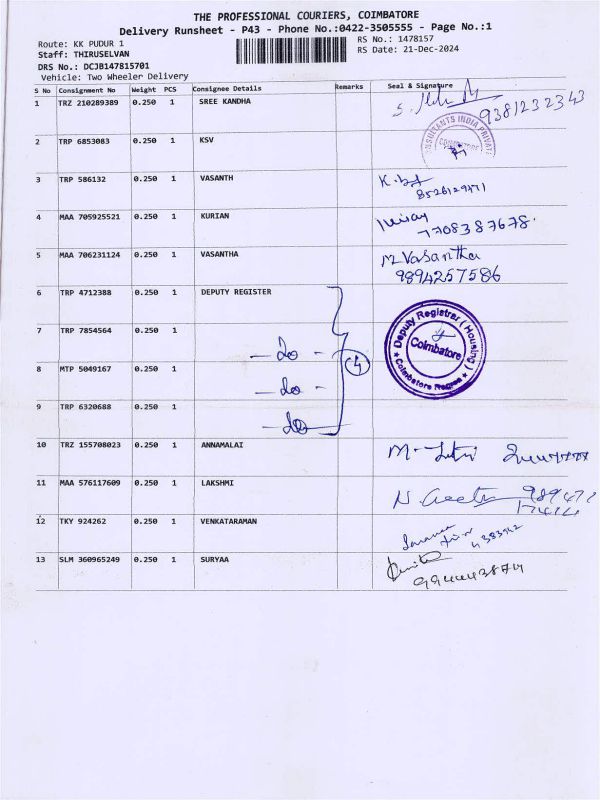 THE PROFESSIONAL COURIERS, COIMBATORE
Delivery Runsheet - P43 - Phone No.:0422-3505555 - Page No.:1
Route: KK PUDUR 1 RS No.: 1478157
Staff: THIRUSELVAN RS Date: 21-Dec-2024
DRS No.: DCJB147815701
Vehicle: Two Wheeler Delivery
S No Consignment No Weight PCS Consignee Details Remarks Seal & Signature
1 TRZ 210289389 0.250 1 SREE KANDHA 9381232343
2 TRP 6853083 0.250 1 KSV
3 TRP 586132 0.250 1 VASANTH
4 MAA 705925521 0.250 1 KURIAN 7708387678
5 MAA 706231124 0.250 1 VASANTHA M Vasantha
9894257586
6 TRP 4712388 0.250 1 DEPUTY REGISTER Deputy Registrar (Housing) Coimbatore
7 TRP 7854564 0.250 1 - do -
8 MTP 5049167 0.250 1 - do - 4
9 TRP 6320688 0.250 1 - do -
10 TRZ 155708023 0.250 1 ANNAMALAI
11 MAA 576117609 0.250 1 LAKSHMI N. Geetha
12 TKY 924262 0.250 1 VENKATARAMAN
13 SLM 360965249 0.250 1 SURYAA